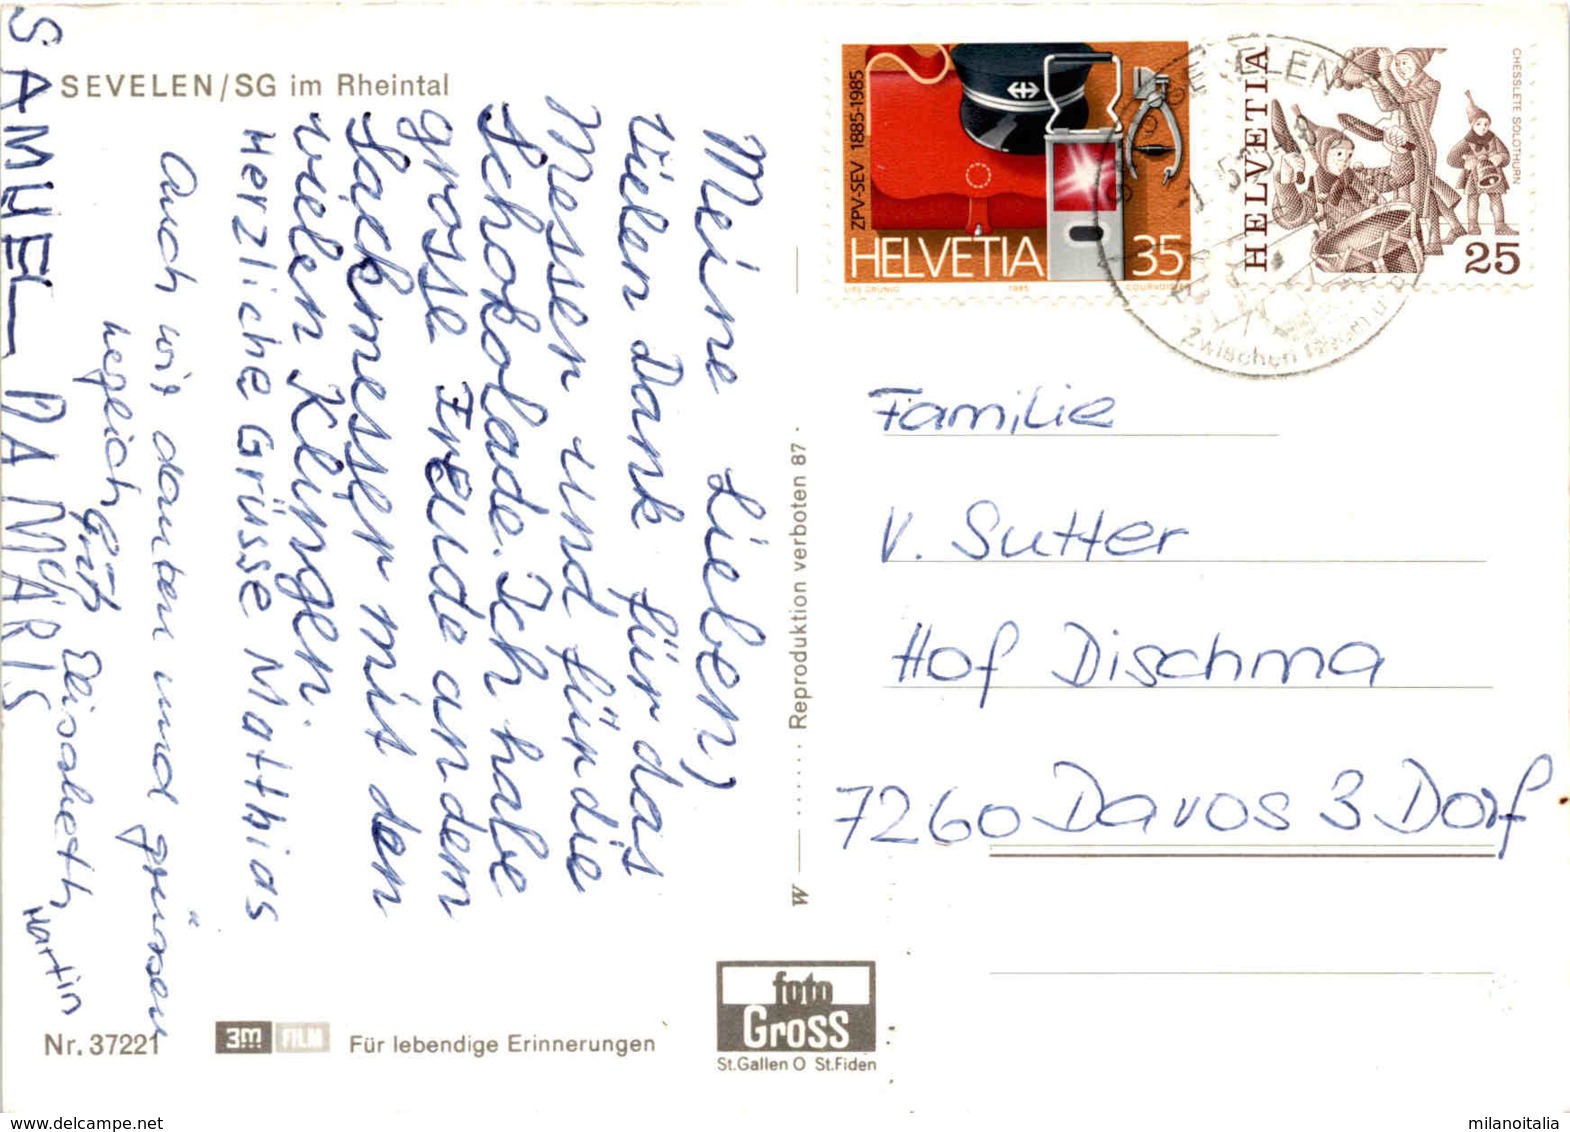 SEVELEN/SG im Rheintal
Meine Lieben,
Vielen Dank für das
Messer und für die
Schokolade. Ich habe
grosse Freude an dem
Sackmesser mit den
vielen Klingen.
Herzliche Grüsse Matthias
Auch wir danken und grüssen
Elisabeth
Martin
SAMUEL DAMARIS
Nr. 37221
3m FILM
Für lebendige Erinnerungen
foto
Gross
St.Gallen O St.Fiden
W
Reproduktion verboten 87
ZPV-SEV 1885-1985
HELVETIA 35
URS GRÜNIG 1985 COURVOISIER
HELVETIA
CHESSLETE SOLOTHURN
25
SEVELEN
Zwischen
Familie
V. Sutter
Hof Dischma
7260 Davos 3 Dorf
www.delcampe.net
milanoitalia